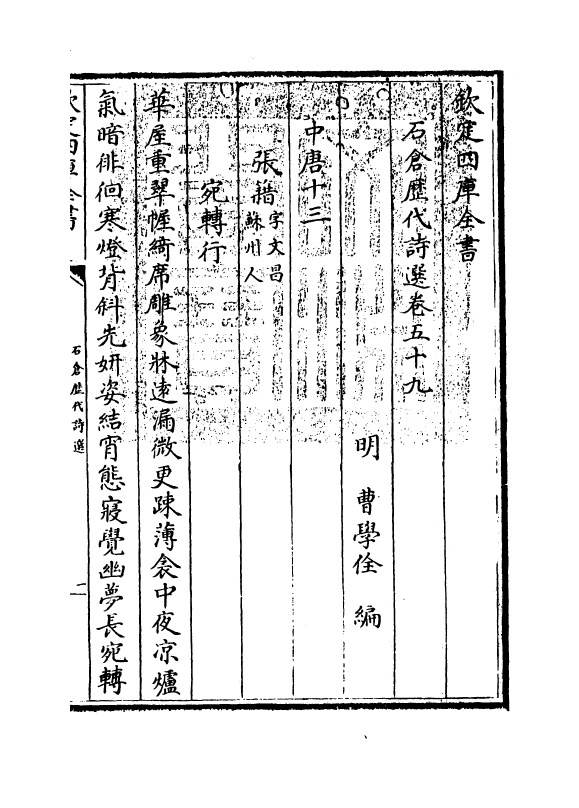 欽定四庫全書
石倉歴代詩選卷五十九
明 曹學佺 編
中唐十三
張籍字文昌蘇州人
宛轉行
華屋重翠幄綺席雕象牀逺漏微更踈薄衾中夜凉爐
氣暗徘徊寒燈背斜光妍姿結宵態寢覺幽夢長宛轉
欽定四庫全書
石倉歴代詩選
二